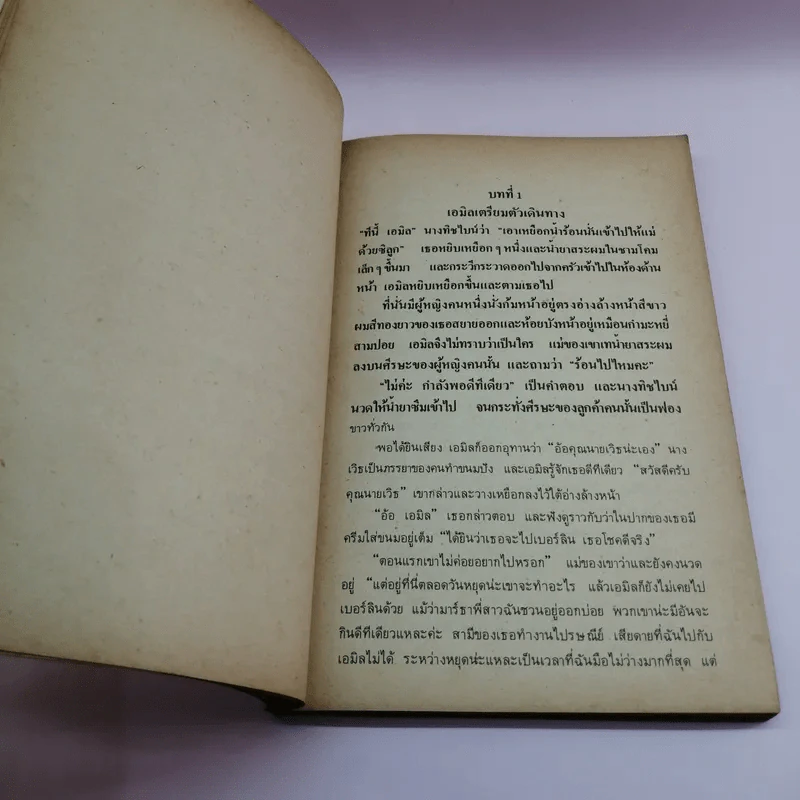 บทที่ 1
เอมิลเตรียมตัวเดินทาง
"ทีนี้ เอมิล" นางทิชไบน์ว่า "เอาเหยือกน้ำร้อนนั่นเข้าไปให้แม่
ด้วยซิลูก" เธอหยิบเหยือก ๆ หนึ่งและน้ำยาสระผมในชามโคม
เล็ก ๆ ขึ้นมา และกระวีกระวาดออกไปจากครัวเข้าไปในห้องด้าน
หน้า เอมิลหยิบเหยือกขึ้นและตามเธอไป
ที่นั่นมีผู้หญิงคนหนึ่งนั่งก้มหน้าอยู่ตรงอ่างล้างหน้าสีขาว
ผมสีทองยาวของเธอสยายออกและห้อยบังหน้าอยู่เหมือนกำมะหยี่
สามปอย เอมิลจึงไม่ทราบว่าเป็นใคร แม่ของเขาเทน้ำยาสระผม
ลงบนศีรษะของผู้หญิงคนนั้น และถามว่า "ร้อนไปไหมคะ"
"ไม่ค่ะ กำลังพอดีทีเดียว" เป็นคำตอบ และนางทิชไบน์
นวดให้น้ำยาซึมเข้าไป จนกระทั่งศีรษะของลูกค้าคนนั้นเป็นฟอง
ขาวทั่วกัน
พอได้ยินเสียง เอมิลก็ออกอุทานว่า "อ้อคุณนายเวิธน่ะเอง" นาง
เวิธเป็นภรรยาของคนทำขนมปัง และเอมิลรู้จักเธอดีทีเดียว "สวัสดีครับ
คุณนายเวิธ" เขากล่าวและวางเหยือกลงไว้ใต้อ่างล้างหน้า
"อ้อ เอมิล" เธอกล่าวตอบ และฟังดูราวกับว่าในปากของเธอมี
ครีมใส่ขนมอยู่เต็ม "ได้ยินว่าเธอจะไปเบอร์ลิน เธอโชคดีจริง"
"ตอนแรกเขาไม่ค่อยอยากไปหรอก" แม่ของเขาว่าและยังคงนวด
อยู่ "แต่อยู่ที่นี่ตลอดวันหยุดน่ะเขาจะทำอะไร แล้วเอมิลก็ยังไม่เคยไป
เบอร์ลินด้วย แม้ว่ามาร์ธาพี่สาวฉันชวนอยู่ออกบ่อย พวกเขาน่ะมีอันจะ
กินดีทีเดียวแหละค่ะ สามีของเธอทำงานไปรษณีย์ เสียดายที่ฉันไปกับ
เอมิลไม่ได้ ระหว่างหยุดน่ะแหละเป็นเวลาที่ฉันมือไม่ว่างมากที่สุด แต่